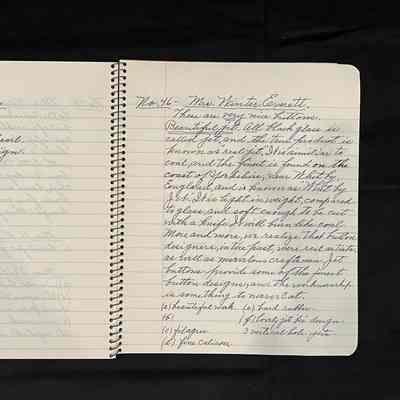 earl.
ign.
No. 46 - Mrs. Winter Everett.
These are very nice buttons.
Beautiful jet. All black glass is
called jet, and the true product is
known as real jet. It is similar to
coal, and the finest is found on the
coast of Yorkshire, near Whitby,
England, and is known as Whitby
Jet. It is light in weight, compared
to glass, and soft enough to be cut
with a knife. It will burn like coal.
More and more, we realize that button
designers, in the past, were real artists,
as well as marvelous craftsmen. Jet
buttons provide some of the finest
button designs, and the workmanship
is something to marvel at.
(a) beautiful work (e) hard rubber
(b) (f) lovely jet
(c) filagree 3 vertical hole jets
(d) fine cut